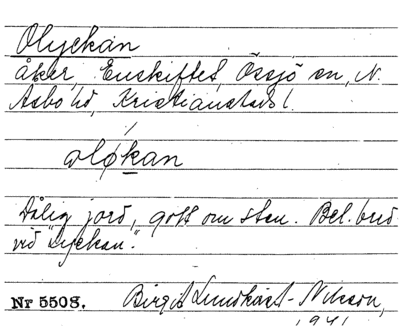 Olyckan
åker, Enskiftet, Össjö sn, N.
Åsbo hd, Kristianstads l.
oløkan
Dålig jord, gott om sten. Bel. bred-
vid "Lyckan".
Nr 5508. Birgit Lundkvist-Nilsson,
1941